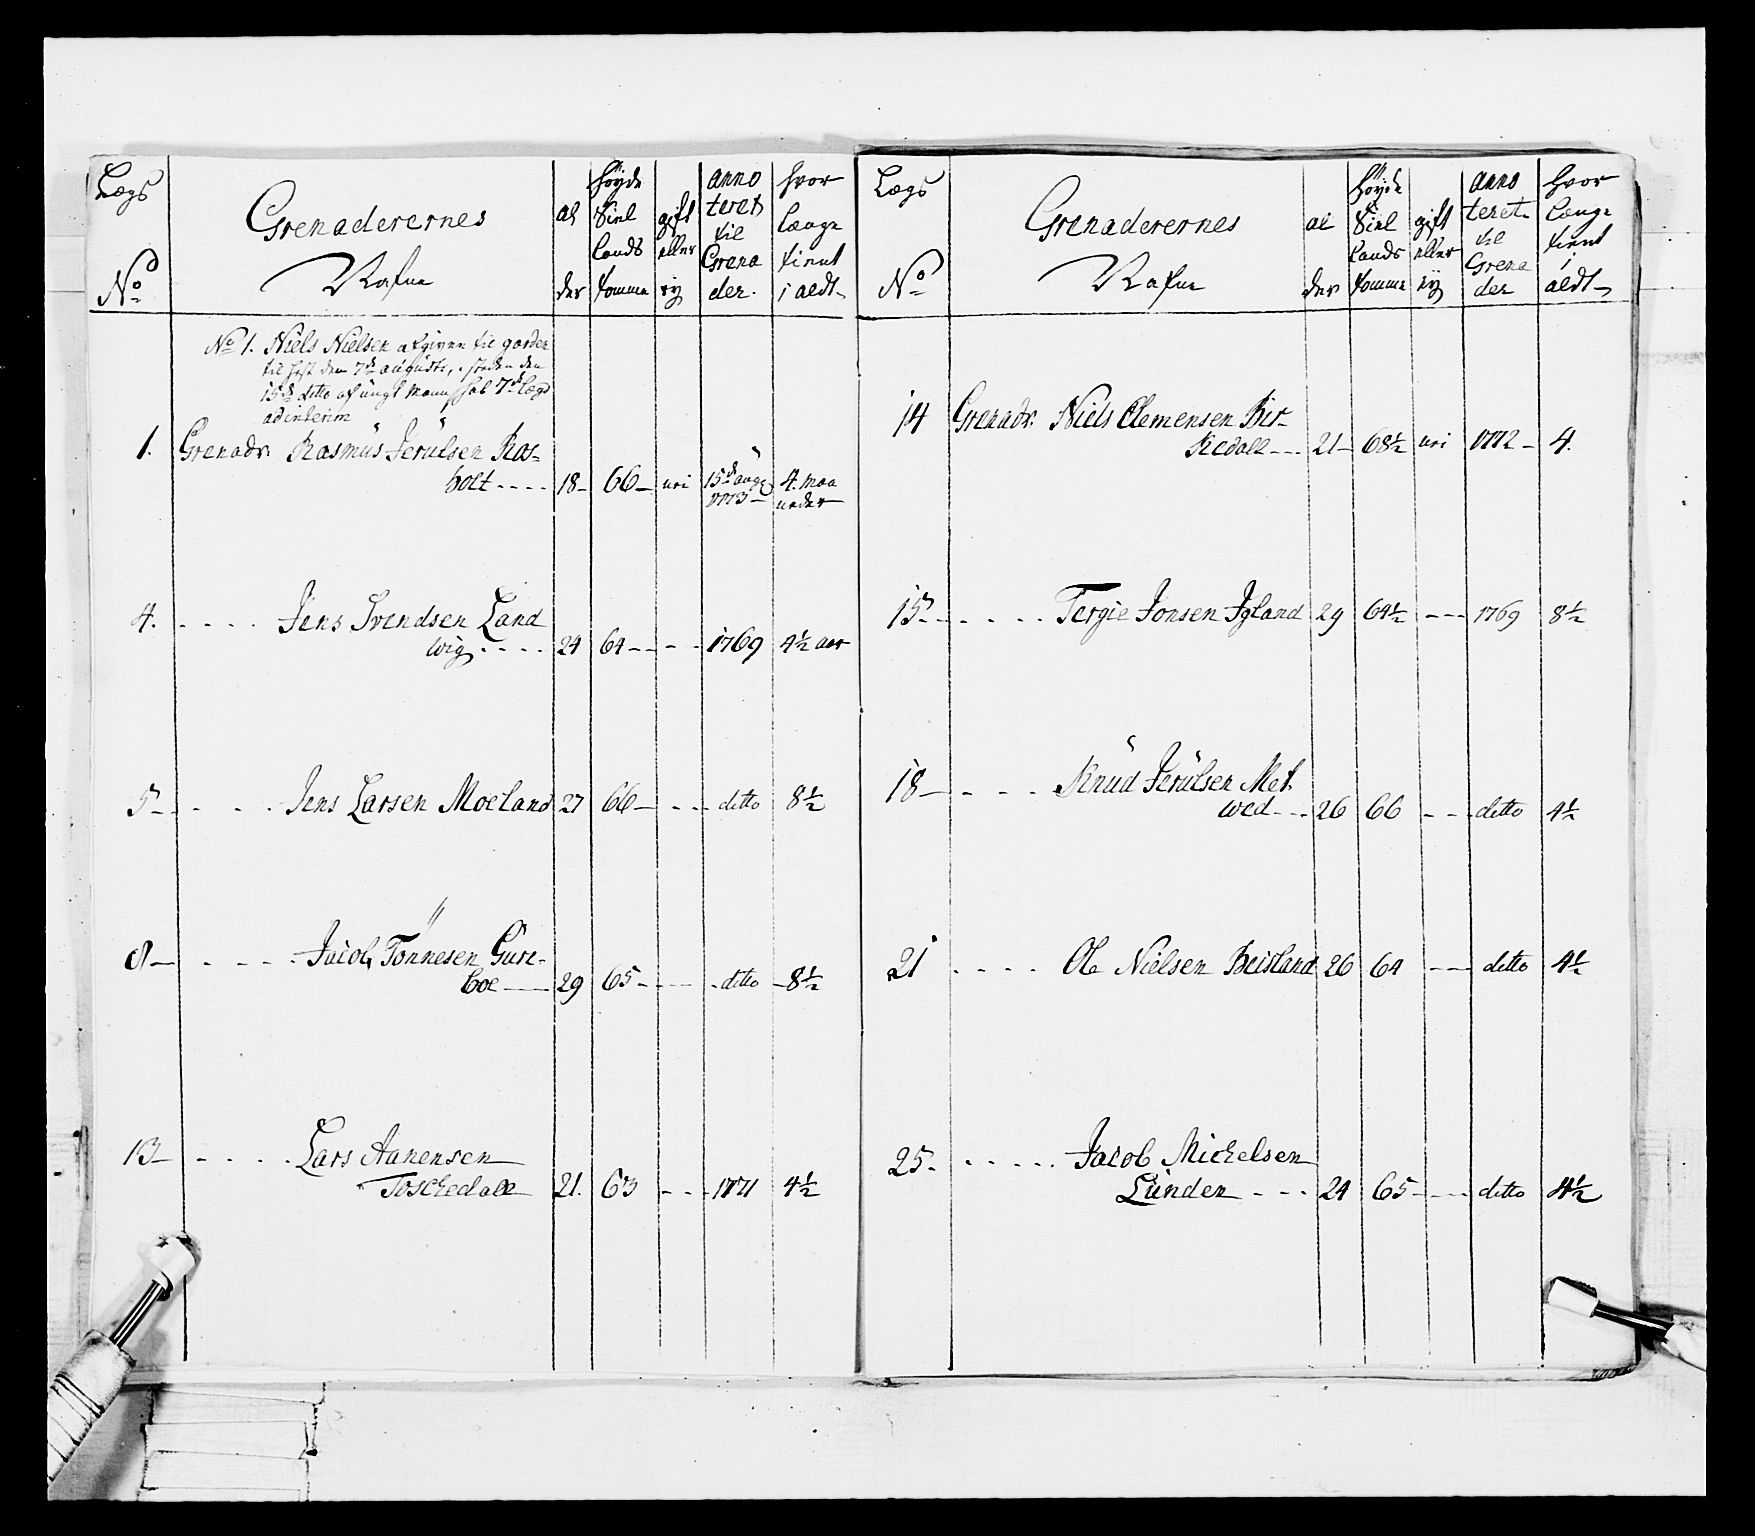 Lægs
No
Grenaderernes
Nafne
al
der
höyde
Siel
lands
tomme
gift
eller
ey
anno
teret
til
Grena
der.
hvor
længe
tient
i aldt
No 1. Niels Nielsen afgiven til garden
til fest den 7de augusti,. steden den
15de ditto af ungt Mandskab 7de Lægd
ad interim
1. Grenadr. Rasmus Jerulsen Ros-
holt .... 18 66 nei 15de augs 1773 4. maa
neder
4. .... Jens Svendsen Land
wig .... 24 64 --- 1769 4½ aar
5 .... Jens Larsen Moeland 27 66 --- ditto 8½
8 .... Jacob Tönnesen Gure-
boe 29 65 --- ditto 8½
13 .... Lars Aanensen
Toschedall 21. 63 --- 1771 4½
Lægs
No
Grenaderernes
Nafne
al
der
höyde
Siel
lands
tomme
gift
eller
ey
anno
teret
til
Grena
der
hvor
længe
tient
i
aldt
14 Grenadr. Niels Clemensen Bir-
kedall --- 21 68½ nei 1772 4.
15 .... Tergie Jonsen Igland 29 64½ --- 1769 8½
18 .... Knud Jerulsen Met
wed --- 26 66 --- ditto 4½
21 .... Ole Nielsen Beisland 26 64 --- ditto 4½
25. .... Jacob Michelsen
Lunden --- 24 65 --- ditto 4½